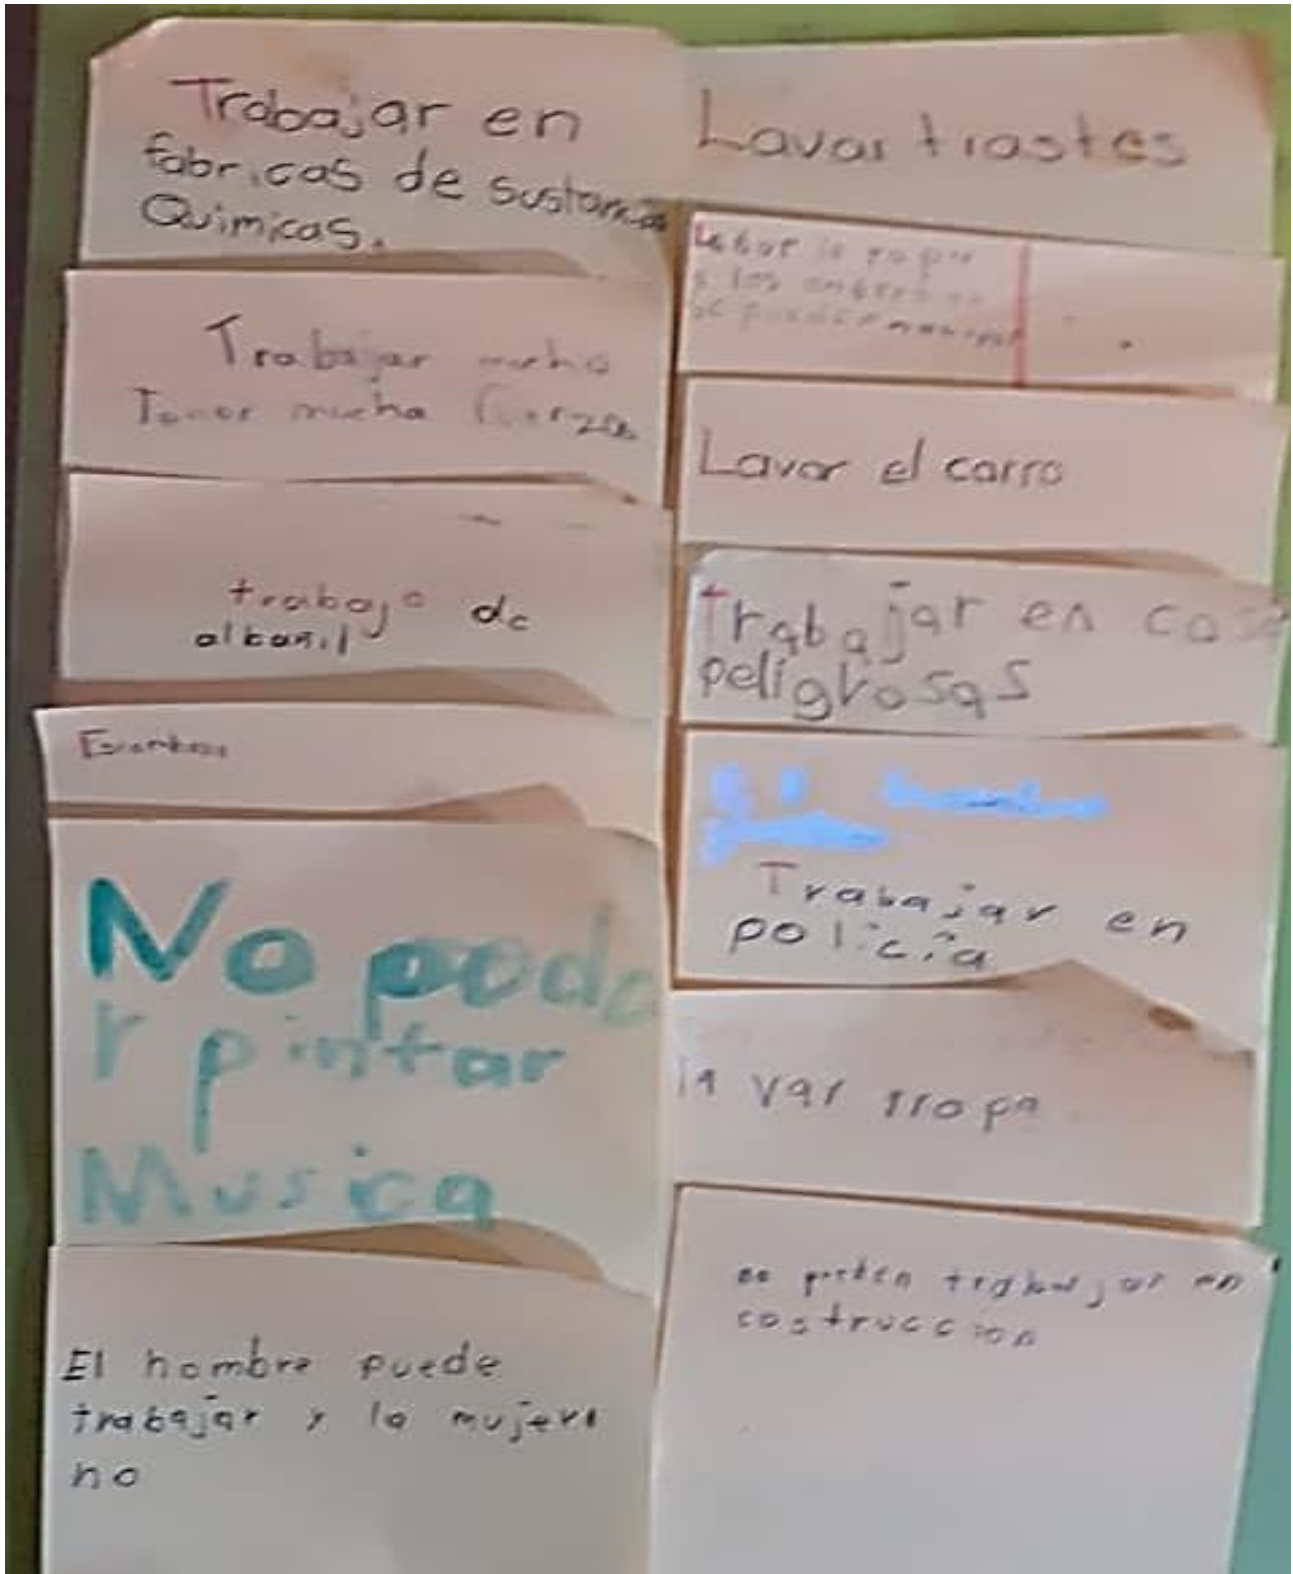 Trabajar en
fabricas de sustancias
Quimicas.
Trabajar mucho
Tener mucha fuerza
trabajo de
albanil
No pode
r pintar
Musica
El hombre puede
trabajar y la mujer
no
Lavar trastes
la ropa
Lavar el carro
trabajar en cosas
peligrosas
Trabajar en
policia
la var rropa
no pueden trabajar en
costruccion